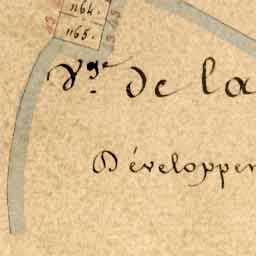 1164.
1165.
Vge. de la
Développer